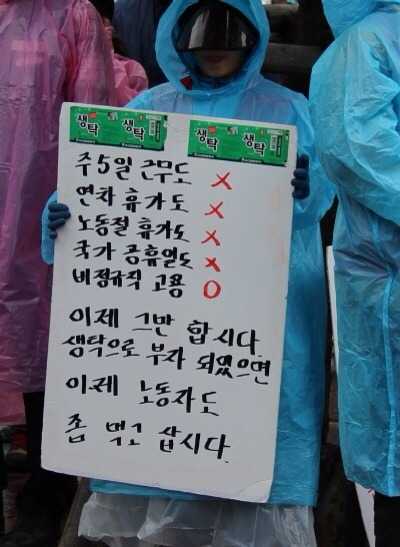 생탁 생탁 생탁 생탁
주5일 근무도 X
연차 휴가도 X
노동절 휴가도 X
국가 공휴일도 X
비정규직 고용 O
이제 그만 합시다.
생탁으로 부자 되었으면
이제 노동자도
좀 먹고 삽시다.